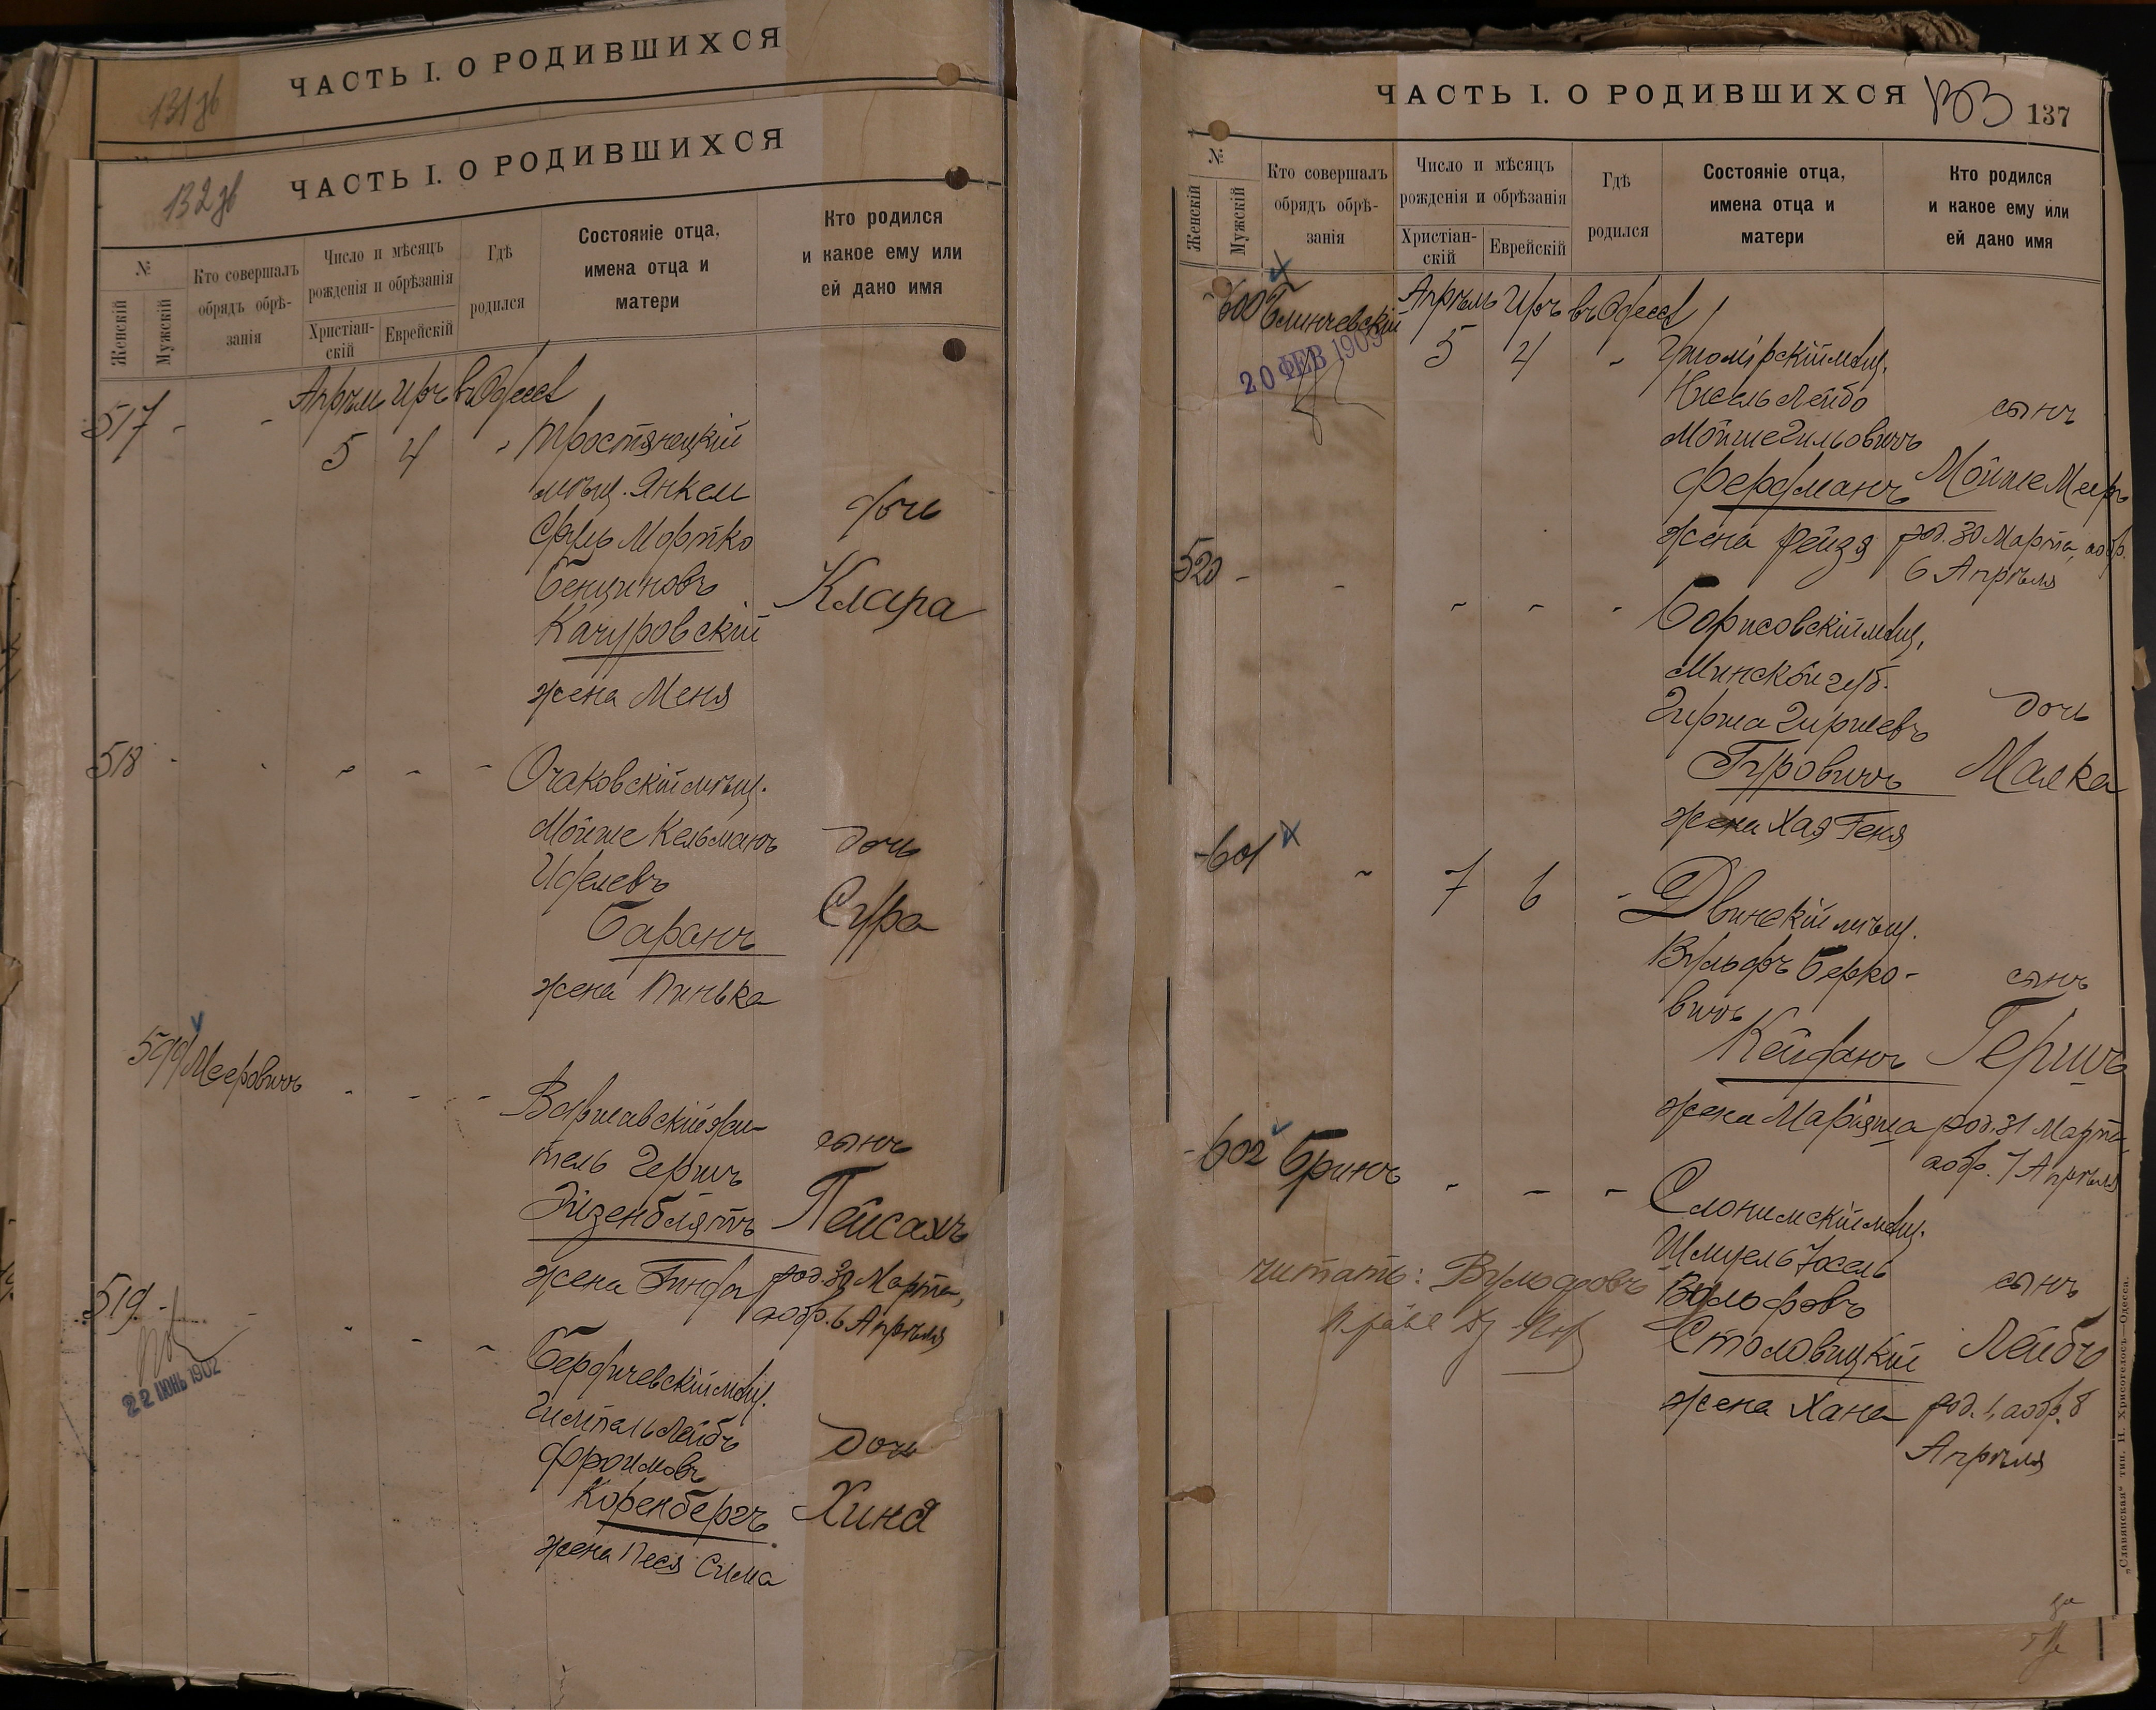 ЧАСТЬ I. О РОДИВШИХСЯ
131 зв
ЧАСТЬ I. О РОДИВШИХСЯ
132 зв
№
Женскій
Мужскій
Кто совершалъ
обрядъ обрѣ-
занія
Число и мѣсяцъ
рожденія и обрѣзанія
Христіан-
скій
Еврейскій
Гдѣ
родился
Состояніе отца,
имена отца и
матери
Кто родился
и какое ему или
ей дано имя
Апрѣль Иръ въ Одессѣ
517 - - 5 4 - Тростянецкій
мѣщ. Янкель
Сруль Мортко
Бенціоновъ
Качуровскій
жена Меня
дочь
Клара
518 - - - - - Очаковскій мѣщ.
Мойше Кельманъ
Иделевъ
Баранъ
жена Пинька
дочь
Сура
599 Мееровичъ - - - Варшавскій жи-
тель Гершъ
Эйзенблятъ
жена Гинда
сынъ
Пейсахъ
род. 30 Марта,
а обр. 6 Апрѣля
519 - - - - - Бердичевскій мѣщ.
Гимпаль Лейбъ
Фроимовъ
Коренбергъ
жена Песя Сима
дочь
Хиня
22 ІЮНЬ 1902
ЧАСТЬ I. О РОДИВШИХСЯ
133
137
№
Женскій
Мужскій
Кто совершалъ
обрядъ обрѣ-
занія
Число и мѣсяцъ
рожденія и обрѣзанія
Христіан-
скій
Еврейскій
Гдѣ
родился
Состояніе отца,
имена отца и
матери
Кто родился
и какое ему или
ей дано имя
Апрѣль Иръ въ Одессѣ
600 Блинчевскій 5 4 - Житомірскій мѣщ.
20 ФЕВ 1909
Нисель Лейбо
Мойше Гильовичъ
Фердманъ
жена Рейзя
сынъ
Мойше Меиръ
род. 30 Марта, а обр.
6 Апрѣля
520 - - - - - Борисовскій мѣщ.
Минской губ.
Гирша Гиршевъ
Гуровичъ
жена Хая Геня
дочь
Малка
601 - 7 6 - Двинскій мѣщ.
Вульфъ Берко-
вичъ
Кейфанъ
жена Маріяша
сынъ
Гершъ
род. 31 Марта,
а обр. 7 Апрѣля
602 Бринъ - - - Слонимскій мѣщ.
Шмуель Іосель
Вульфовъ
Столовицкій
жена Хана
сынъ
Лейбъ
род. 1, а обр. 8
Апрѣля
читать: Вульфовъ
„Славянская“ тип. Н. Хрисогелосъ—Одесса.